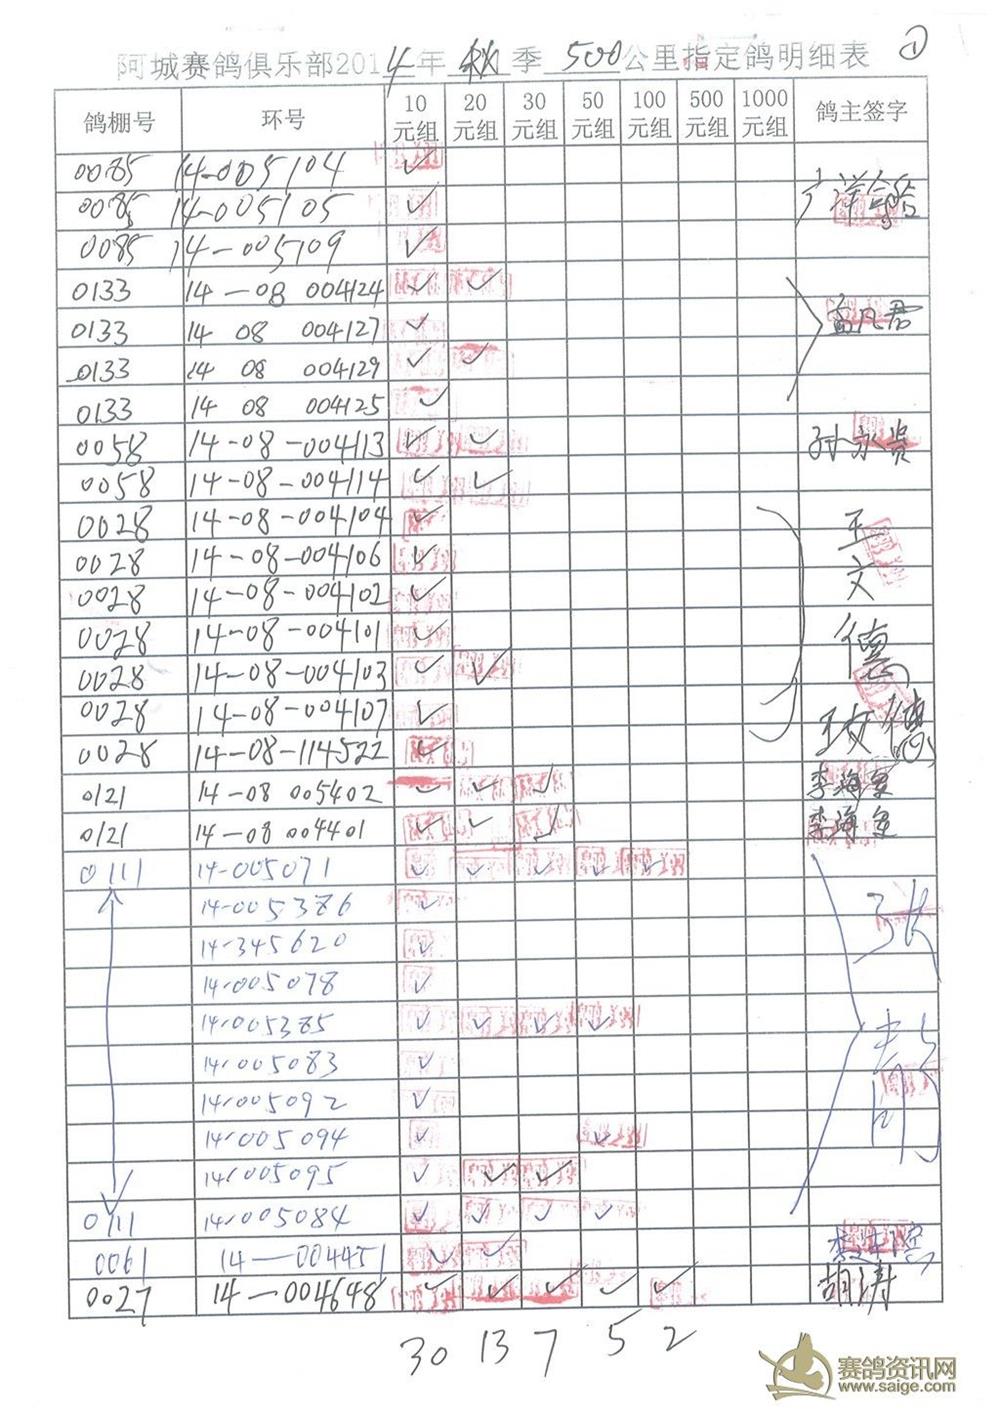 ①
阿城赛鸽俱乐部2014年 秋 季 500 公里指定鸽明细表
鸽棚号 环号 10元组 20元组 30元组 50元组 100元组 500元组 1000元组 鸽主签字
0085 14-005104 ✓
0085 14-005105 ✓
0085 14-005109 ✓
0133 14-08 004124 ✓ ✓
0133 14 08 004127 ✓
0133 14 08 004129 ✓ ✓
0133 14 08 004125 ✓
0058 14-08-004113 ✓ ✓ 孙永贵
0058 14-08-004114 ✓ ✓
0028 14-08-004104 ✓ 王文德
0028 14-08-004106 ✓
0028 14-08-004102 ✓
0028 14-08-004101 ✓
0028 14-08-004103 ✓ ✓
0028 14-08-004107 ✓
0028 14-08-114522 ✓
0121 14-08 005402 ✓ ✓ ✓ 李海军
0121 14-08 004401 ✓ ✓ ✓ 李海军
0111 14-005071 ✓ ✓ ✓ ✓ ✓
14-005386 ✓
14-345620 ✓
14-005078 ✓
14-005385 ✓ ✓ ✓ ✓
14-005083 ✓
14-005092 ✓
14-005094 ✓ ✓
14-005095 ✓ ✓ ✓
0111 14-005084 ✓ ✓ ✓ ✓
0061 14-004451 ✓ ✓
0027 14-004648 ✓ ✓ ✓ ✓ ✓ 胡涛
30 13 7 5 2
赛鸽资讯网
www.saige.com